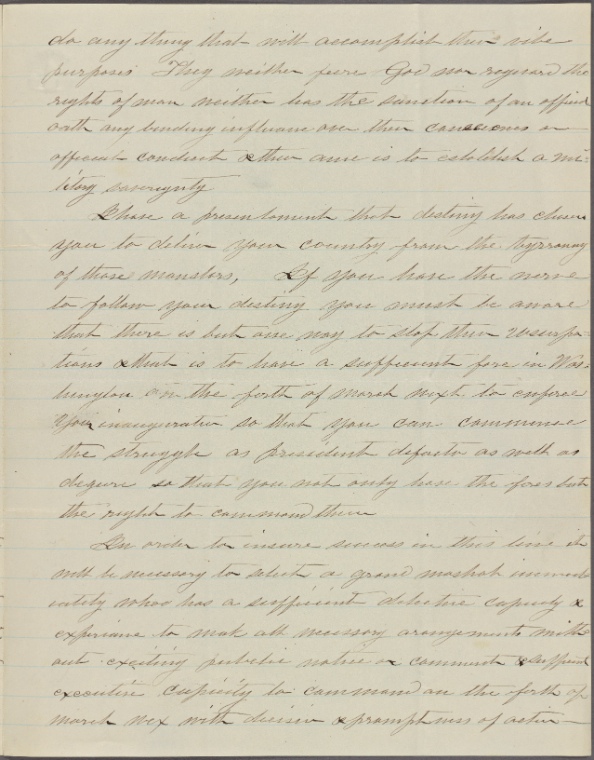 do any thing that will accomplish their vile
purposes They neither fere God nor reguard the
rights of man neither has the sanction of an official
oath any binding influance over their consciences or
official conduct & their ame is to establish a mi-
litary sovereignty
I have a presentament that destiny has chosen
you to deliver your country from the tyrronny
of those monsters, If you have the nerve
to follow your destiny you must be aware
that there is but one way to stop their usurpa-
tions & that is to have a sufficient forse in Was-
hington on the forth of march next to enforse
your inauguration so that you can commence
the struggle as president defacto as well as
dejure so that you not only have the forse but
the right to command them
In order to insure success in this line it
will be necessary to select a grand mashal immed-
iately whoo has a sufficient detective capacity &
experiance to mak all necessary arangements with
out exciting publie notice or comment & sufficient
executive capacity to command on the forth of
march nex with decision & promptness of action